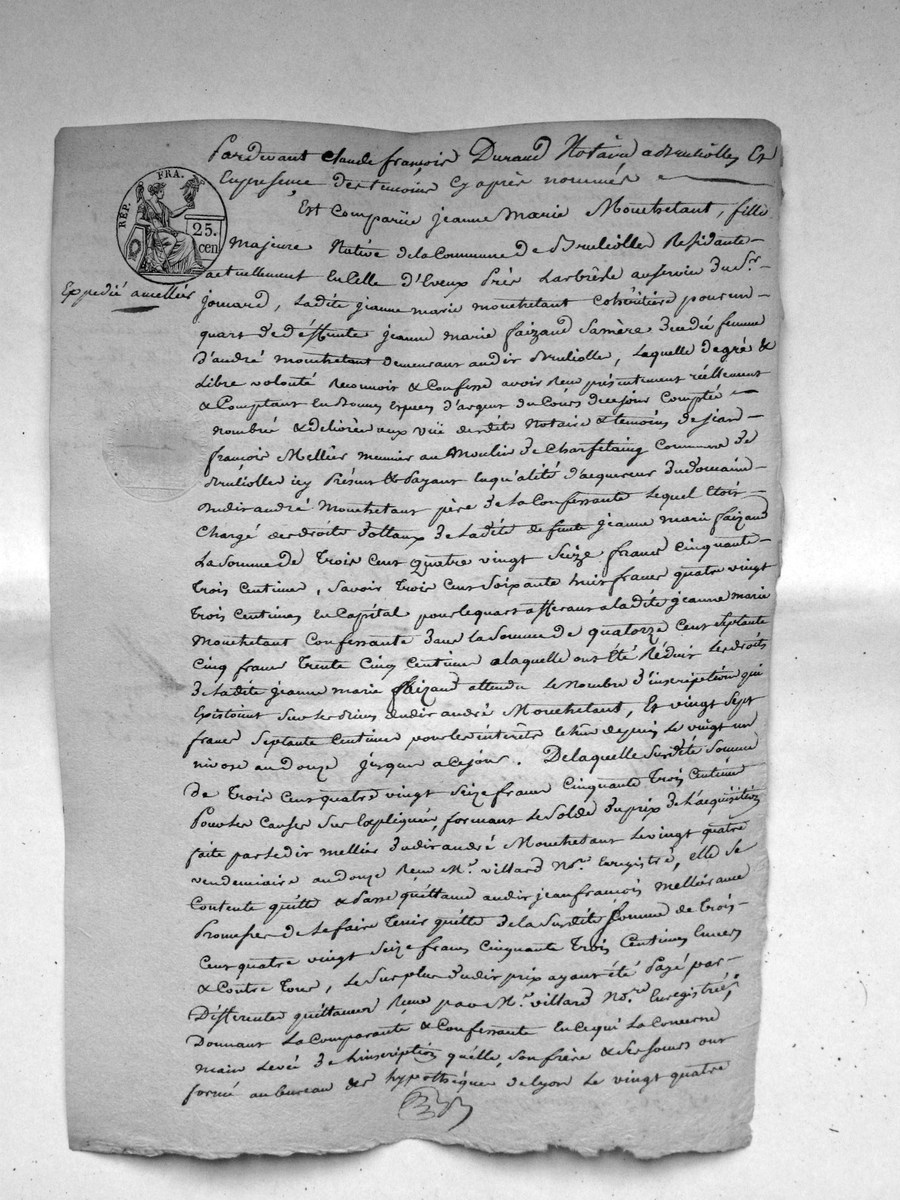 Pardevant Claude françois Durand Notaire a Brulliolles Et
En presence des temoins Cy après nommés
Est Comparüe jeanne Marie Mouchetant, fille
RÉP. FRA.
25. cen
Majeure Native de la Commune de Brulliolles Residante
actuellement En Celle d'Eveux Près Larbrêle au service du Sr.
Expedié a mellier
jomard, Ladite jeanne marie mouchetant Cohéritière pour un
quart de défunte jeanne marie faizand Sa mère decedée femme
d'andré mouchetant demeurant audit Brulliolle, Laquelle de gré &
Libre volonté Reconnoit & Confesse avoir Reçu présentement réellement
& Comptant En Bonnes Espèces d'argent du Cours de ce jour Compté
nombré & délivrée aux vüe desdits Notaire & temoins de jean
françois Mellier meunier au Moulin de Charfetaing Commune de
Brulliolles icy Présent & Payant En qualité d'acquereur du domaine
dudit andré Mouchetant père de la Confessante Lequel Etoit
Chargé des droits dottaux de Ladite defunte jeanne marie faizand
La somme de trois Cent quatre vingt Seize francs Cinquante
trois Centimes, Savoir trois Cent Soixante huit francs quatre vingt
trois Centimes En Capital pour le quart afferant a ladite jeanne marie
Mouchetant Confessante dans la Somme de quatorze Cent Septante
Cinq francs trente Cinq Centimes a laquelle ont été Réduits Les droits
de Ladite jeanne marie faizand attendu Le nombre d'inscription qui
Existoient Sur Les Biens dudit andré Mouchetant, Et vingt Sept
francs Septante Centimes pour les interêts Echus depuis Le vingt un
nivose an douze jusques a ce jour. De laquelle Susdite Somme
de trois Cent quatre vingt Seize francs Cinquante trois Centimes
Pour les Causes Sus Expliquées, formant Le Solde du prix de L'acquisition
faite par Ledit mellier dudit andré Mouchetant Le vingt quatre
vendemiaire an douze Reçu Me. Villard Nre. Enregistré, elle Se
Contente quitte & Passe quittance audit jean françois Mellier avec
Promesse de Le faire tenir quitte de la Susdite Somme de trois
Cent quatre vingt Seize francs Cinquante trois Centimes Envers
& Contre tous, Le Surplus dudit prix ayant été Payé par
Differentes quittances Reçu par Me. Villard Nre. Enregistrées,
Donnant La Comparante & Confessante En Ce qui La Concerne
main Levée de L'inscription qu'elle, Son frère & Ses Soeurs ont
formé au bureau des hypothèques de Lyon Le vingt quatre